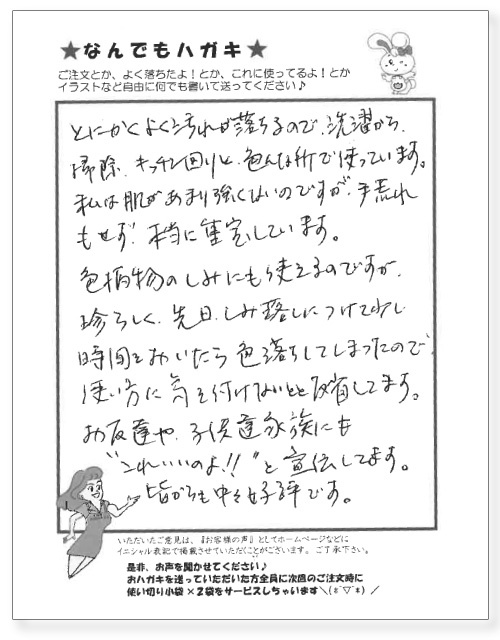 ★なんでもハガキ★
ご注文とか、よく落ちたよ！とか、これに使ってるよ！とか
イラストなど自由に何でも書いて送ってください♪
とにかくよく汚れが落ちるので、洗濯から、
掃除、キッチン回りと、色んな所で使っています。
私は肌があまり強くないのですが、手荒れ
もせず、本当に重宝しています。
色柄物のしみにも使えるのですが、
珍らしく、先日、しみ落しにつけて少し
時間をおいたら色落ちしてしまったので、
使い方に気を付けないとと反省してます。
お友達や、子供達家族にも
"これいいのよ!!"と宣伝してます。
皆からも中々好評です。
いただいたご意見は、『お客様の声』としてホームページなどに
イニシャル表記で掲載させていただくことがございます。ご了承下さい。
是非、お声を聞かせてください♪
おハガキを送っていただいた方全員に次回のご注文時に
使い切り小袋×2袋をサービスしちゃいます＼(*´▽`*)／